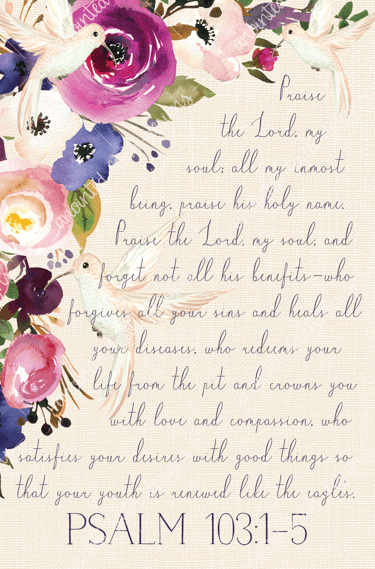 Praise
the Lord, my
soul; all my inmost
being, praise his holy name.
Praise the Lord, my soul, and
forget not all his benefits—who
forgives all your sins and heals all
your diseases, who redeems your
life from the pit and crowns you
with love and compassion, who
satisfies your desires with good things so
that your youth is renewed like the eagle's.
PSALM 103:1-5